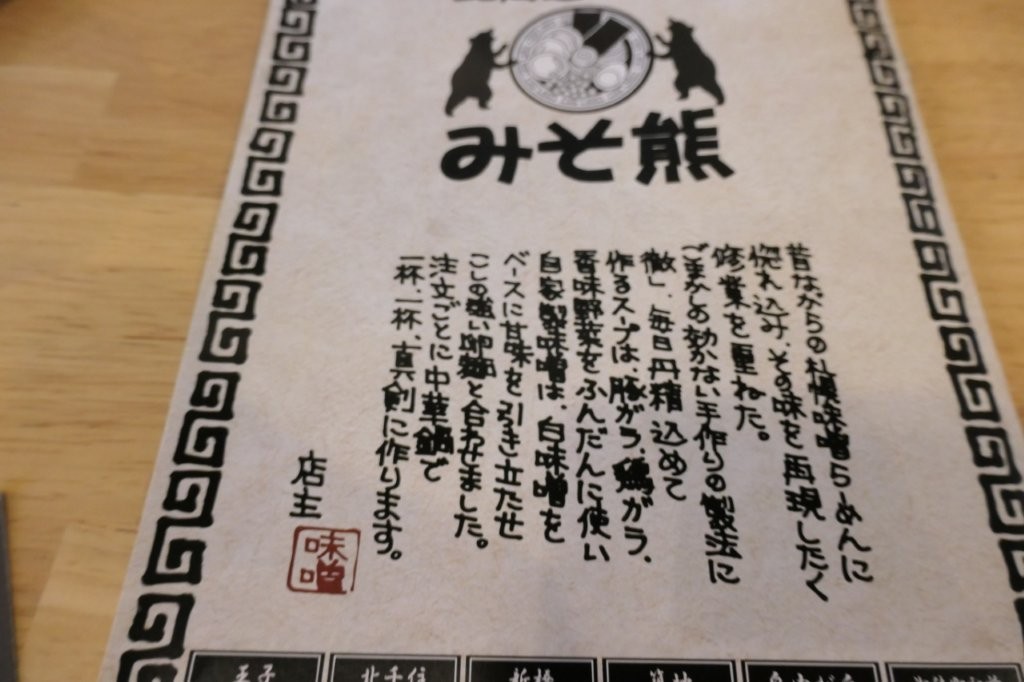 みそ熊
昔ながらの札幌味噌らーめんに
惚れ込み、その味を再現したく
修業を重ねた。
ごまかしの効かない手作りの製法に
徹し、毎日丹精込めて
作るスープは、豚がら、鶏がら、
香味野菜をふんだんに使い
自家製味噌は、白味噌を
ベースに甘味を引き立たせ
こしの強い卵麺と合わせました。
注文ごとに中華鍋で
一杯、一杯、真剣に作ります。
店主
味噌
王子
北千住
板橋
築地